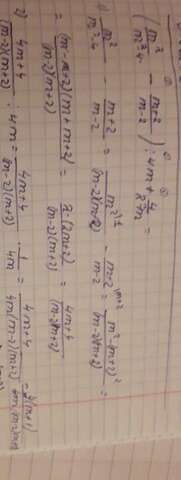 (m²/(m²-4) - (m+2)/(m-2)) : 4m + 4/
1) m²/(m²-4) - (m+2)/(m-2) = m²/((m-2)(m+2)) - (m+2)/(m-2) = (m²-(m+2)²)/((m-2)(m+2)) =
= (m-m+2)(m+m+2)/((m-2)(m+2)) = 2·(2m+2)/((m-2)(m+2)) = (4m+4)/((m-2)(m+2))
2) (4m+4)/((m-2)(m+2)) : 4m = (4m+4)/((m-2)(m+2)) · 1/4m = (4m+4)/(4m(m-2)(m+2)) =